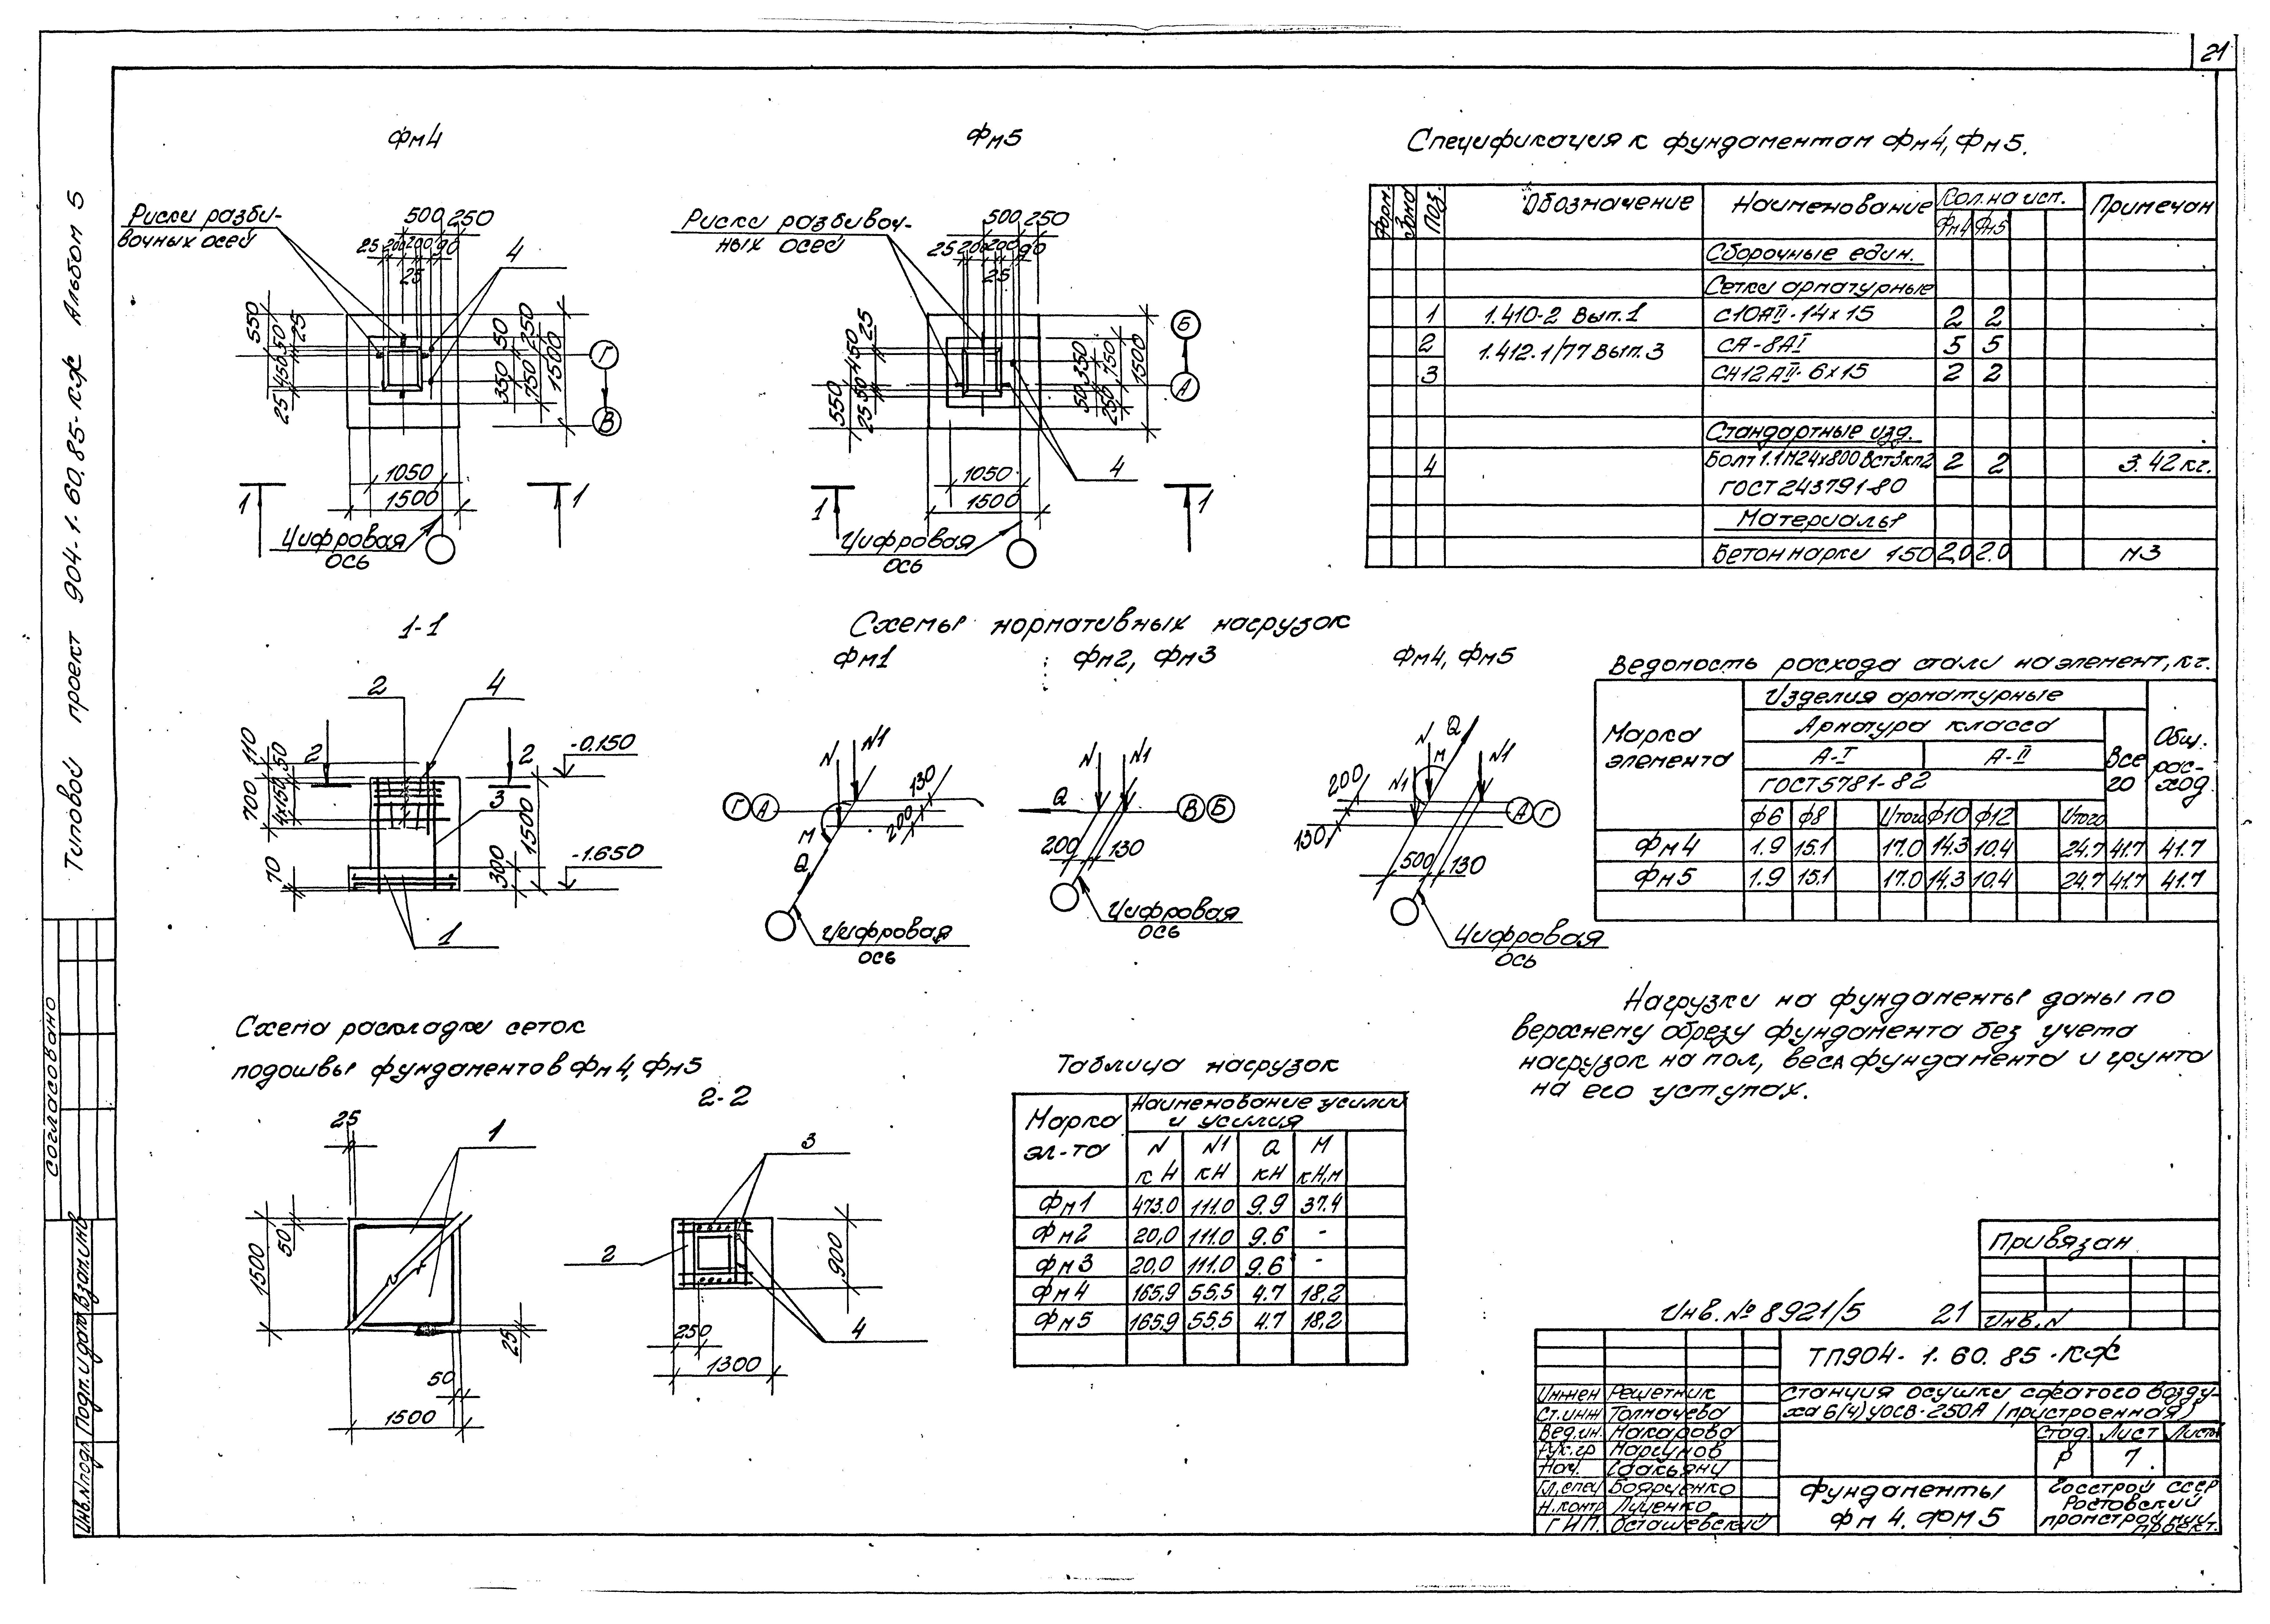 21
Типовой проект 904-1.60.85-КЖ Альбом 5
Фм4
Риски разби-
вочных осей
500 250
25 200 200 90
25
4
550
50 25
450
25
50 250
350 750 1500
Г
В
1050
1500
1 1
Цифровая
ось
Фм5
Риски разбивоч-
ных осей
500 250
25 200 200 90
25
25
450
50
25
550
350 750 1500
50 250
Б
А
4
1050
1500
1 1
Цифровая
ось
Спецификация к фундаментам Фм4, Фм5.
Форм. Зона Поз. Обозначение Наименование Кол. на исп. Примечан
Фм4 Фм5
Сборочные един.
Сетки арматурные
1 1.410-2 Вып.1 С10АII-14х15 2 2
2 1.412.1/77 Вып.3 СА-8АI 5 5
3 СН12АII-6х15 2 2
Стандартные изд.
4 Болт 1.1М24х800 ВСт3кп2 2 2 3.42кг.
ГОСТ 24379.1-80
Материалы
Бетон марки 150 2,0 2.0 м3
1-1
2 4
110
50
700
4х150
70
2 2
-0.150
3
1500
300
-1.650
1
Схемы нормативных нагрузок
Фм1 Фм2, Фм3 Фм4, Фм5
N N1
Г А
М
Q
130
200
Цифровая
ось
N N1
Q
В Б
200 130
Цифровая
ось
N Q
М
N1 N1
200
130
А Г
500 130
Цифровая
ось
Ведомость расхода стали на элемент, кг.
Марка
элемента
Изделия арматурные
Арматура класса
А-I А-II
ГОСТ 5781-82
Все
го
Общ.
рас-
ход
ф6 ф8 Итого ф10 ф12 Итого
Фм4 1.9 15.1 17.0 14.3 10.4 24.7 41.7 41.7
Фм5 1.9 15.1 17.0 14.3 10.4 24.7 41.7 41.7
Нагрузки на фундаменты даны по
верхнему обрезу фундамента без учета
нагрузок на пол, веса фундамента и грунта
на его уступах.
Схема раскладки сеток
подошвы фундаментов Фм4, Фм5
25
1
50
1500
25
50
1500
2-2
3
2
900
4
250
1300
Таблица нагрузок
Марка
эл-та
Наименование усилий
и усилия
N N1 Q М
кН кН кН кН,м
Фм1 473.0 111.0 9.9 37.4
Фм2 20,0 111.0 9.6 -
Фм3 20,0 111.0 9.6 -
Фм4 165,9 55,5 4.7 18,2
Фм5 165,9 55,5 4.7 18,2
Согласовано
Инв.№подл Подп. и дата Взам.инв
Привязан
Инв.N
Инв.№ 8921/5 21
ТП904-1.60.85-КЖ
Станция осушки сжатого возду-
ха 6(4)УОСВ-250А (пристроенная)
Инжен Решетник
Ст.инж Толмачева
Вед.ин. Макарова
Рук.гр Маргунов
Нач.
Гл.спец Боярченко
Н.контр Луценко
ГИП. Осташевский
Стад. Лист Листов
Р 7
Фундаменты
Фм 4. Фм 5
Госстрой СССР
Ростовский
промстройниипроект.